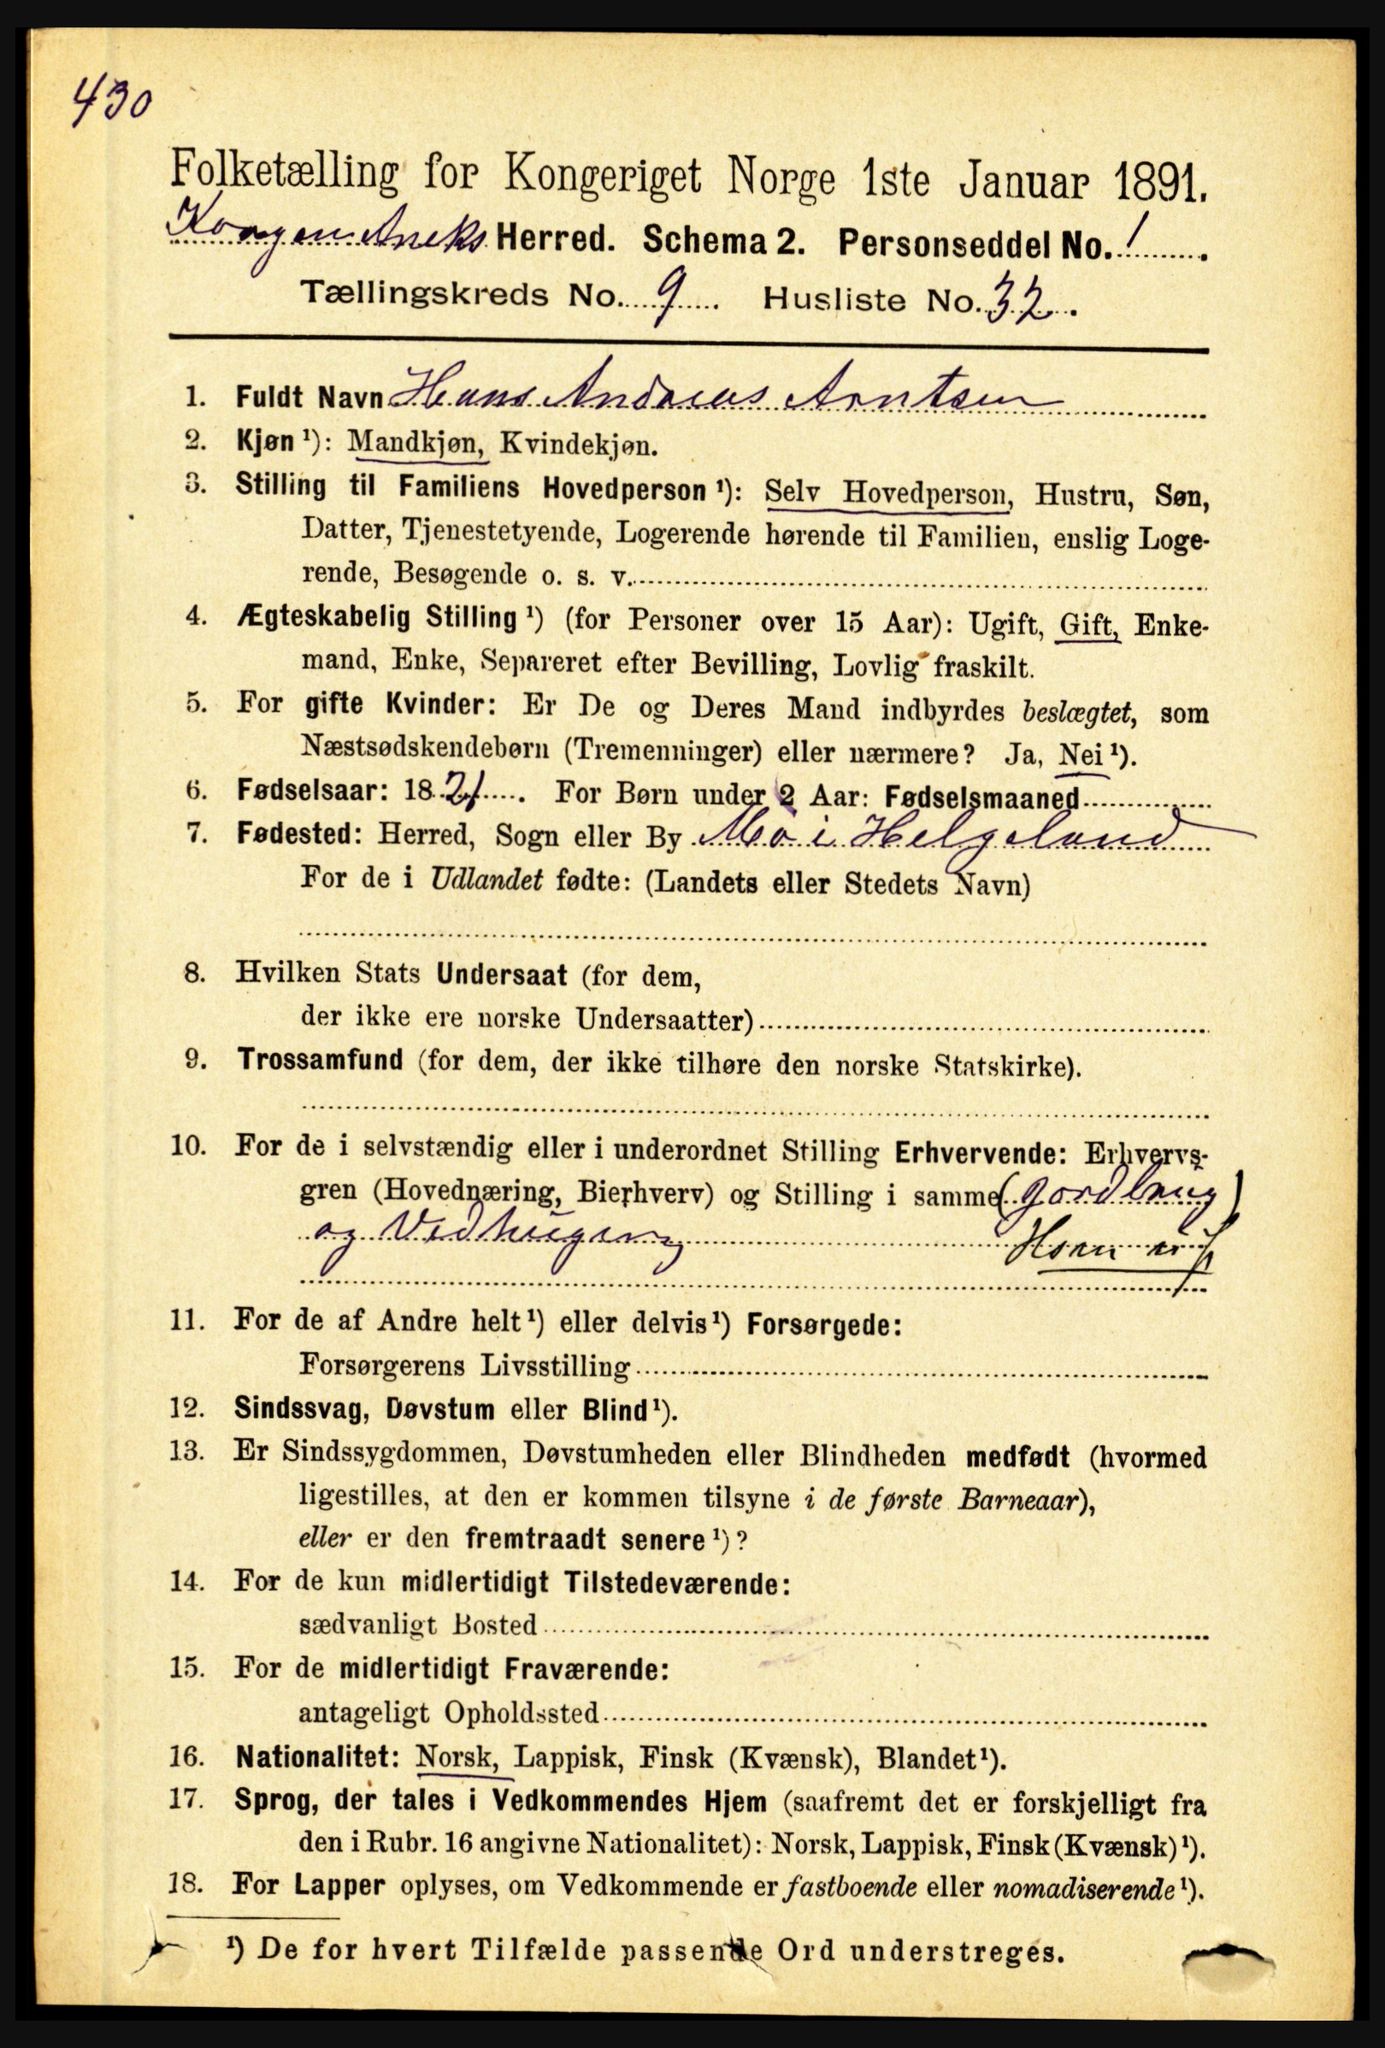 430
Folketælling for Kongeriget Norge 1ste Januar 1891.
Aneks Herred. Schema 2. Personseddel No. 1
Tællingskreds No. 9. Husliste No. 32.
1. Fuldt Navn Hans Andreas Arntsen
2. Kjøn ¹): Mandkjøn, Kvindekjøn.
3. Stilling til Familiens Hovedperson ¹): Selv Hovedperson, Hustru, Søn,
Datter, Tjenestetyende, Logerende hørende til Familien, enslig Loge-
rende, Besøgende o. s. v.
4. Ægteskabelig Stilling ¹) (for Personer over 15 Aar): Ugift, Gift, Enke-
mand, Enke, Separeret efter Bevilling, Lovlig fraskilt.
5. For gifte Kvinder: Er De og Deres Mand indbyrdes beslægtet, som
Næstsødskendebørn (Tremenninger) eller nærmere? Ja, Nei ¹).
6. Fødselsaar: 1821. For Børn under 2 Aar: Fødselsmaaned
7. Fødested: Herred, Sogn eller By Mo i Helgeland
For de i Udlandet fødte: (Landets eller Stedets Navn)
8. Hvilken Stats Undersaat (for dem,
der ikke ere norske Undersaatter)
9. Trossamfund (for dem, der ikke tilhøre den norske Statskirke).
10. For de i selvstændig eller i underordnet Stilling Erhvervende: Erhvervs-
gren (Hovednæring, Bierhverv) og Stilling i samme (Gardbrug)
og Vedhuging
11. For de af Andre helt ¹) eller delvis ¹) Forsørgede:
Forsørgerens Livsstilling
12. Sindssvag, Døvstum eller Blind ¹).
13. Er Sindssygdommen, Døvstumheden eller Blindheden medfødt (hvormed
ligestilles, at den er kommen tilsyne i de første Barneaar),
eller er den fremtraadt senere ¹)?
14. For de kun midlertidigt Tilstedeværende:
sædvanligt Bosted
15. For de midlertidigt Fraværende:
antageligt Opholdssted
16. Nationalitet: Norsk, Lappisk, Finsk (Kvænsk), Blandet ¹).
17. Sprog, der tales i Vedkommendes Hjem (saafremt det er forskjelligt fra
den i Rubr. 16 angivne Nationalitet): Norsk, Lappisk, Finsk (Kvænsk) ¹).
18. For Lapper oplyses, om Vedkommende er fastboende eller nomadiserende ¹).
¹) De for hvert Tilfælde passende Ord understreges.